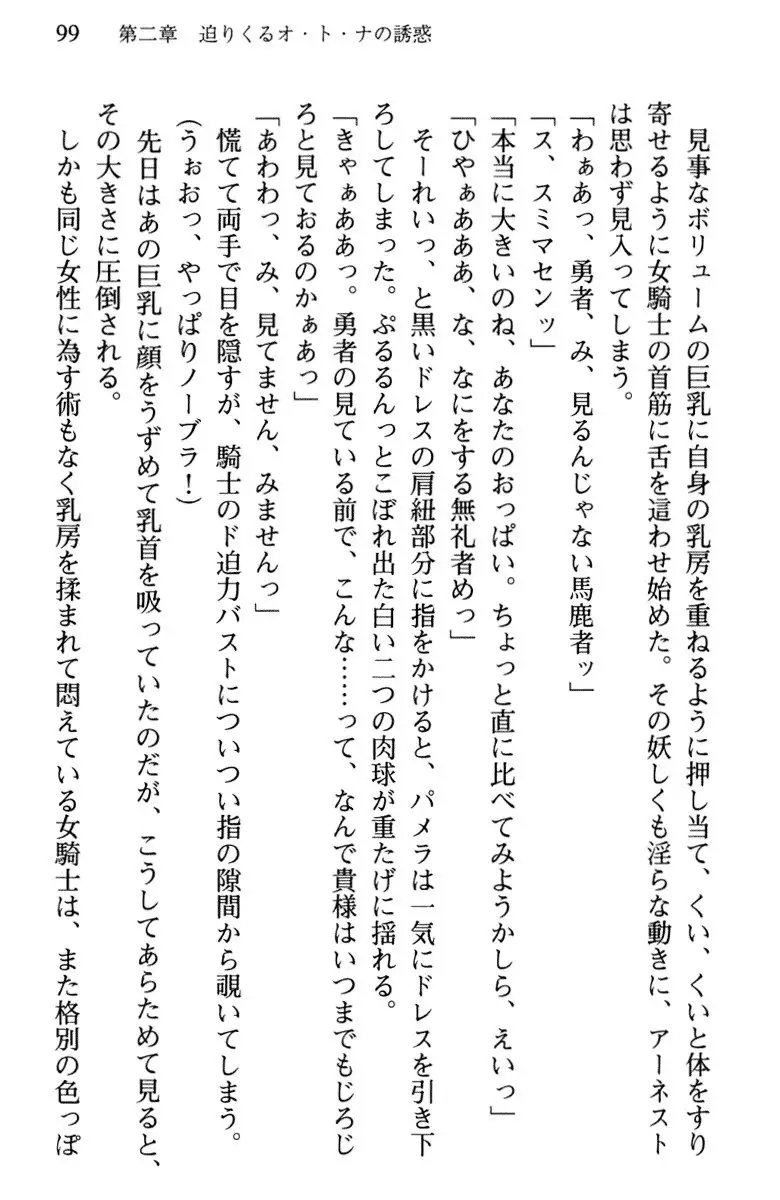 99　第二章　迫りくるオ・ト・ナの誘惑
　見事なボリュームの巨乳に自身の乳房を重ねるように押し当て、くい、くいと体をすり
寄せるように女騎士の首筋に舌を這わせ始めた。その妖しくも淫らな動きに、アーネスト
は思わず見入ってしまう。
「わぁあっ、勇者、み、見るんじゃない馬鹿者ッ」
「ス、スミマセンッ」
「本当に大きいのね、あなたのおっぱい。ちょっと直に比べてみようかしら、えいっ」
「ひやぁあああ、な、なにをする無礼者めっ」
　そーれいっ、と黒いドレスの肩紐部分に指をかけると、パメラは一気にドレスを引き下
ろしてしまった。ぷるるんっとこぼれ出た白い二つの肉球が重たげに揺れる。
「きゃぁああっ。勇者の見ている前で、こんな……って、なんで貴様はいつまでもじろじ
ろと見ておるのかぁあっ」
「あわわっ、み、見てません、みませんっ」
　慌てて両手で目を隠すが、騎士のド迫力バストについつい指の隙間から覗いてしまう。
（うぉおっ、やっぱりノーブラ！）
　先日はあの巨乳に顔をうずめて乳首を吸っていたのだが、こうしてあらためて見ると、
その大きさに圧倒される。
　しかも同じ女性に為す術もなく乳房を揉まれて悶えている女騎士は、また格別の色っぽ